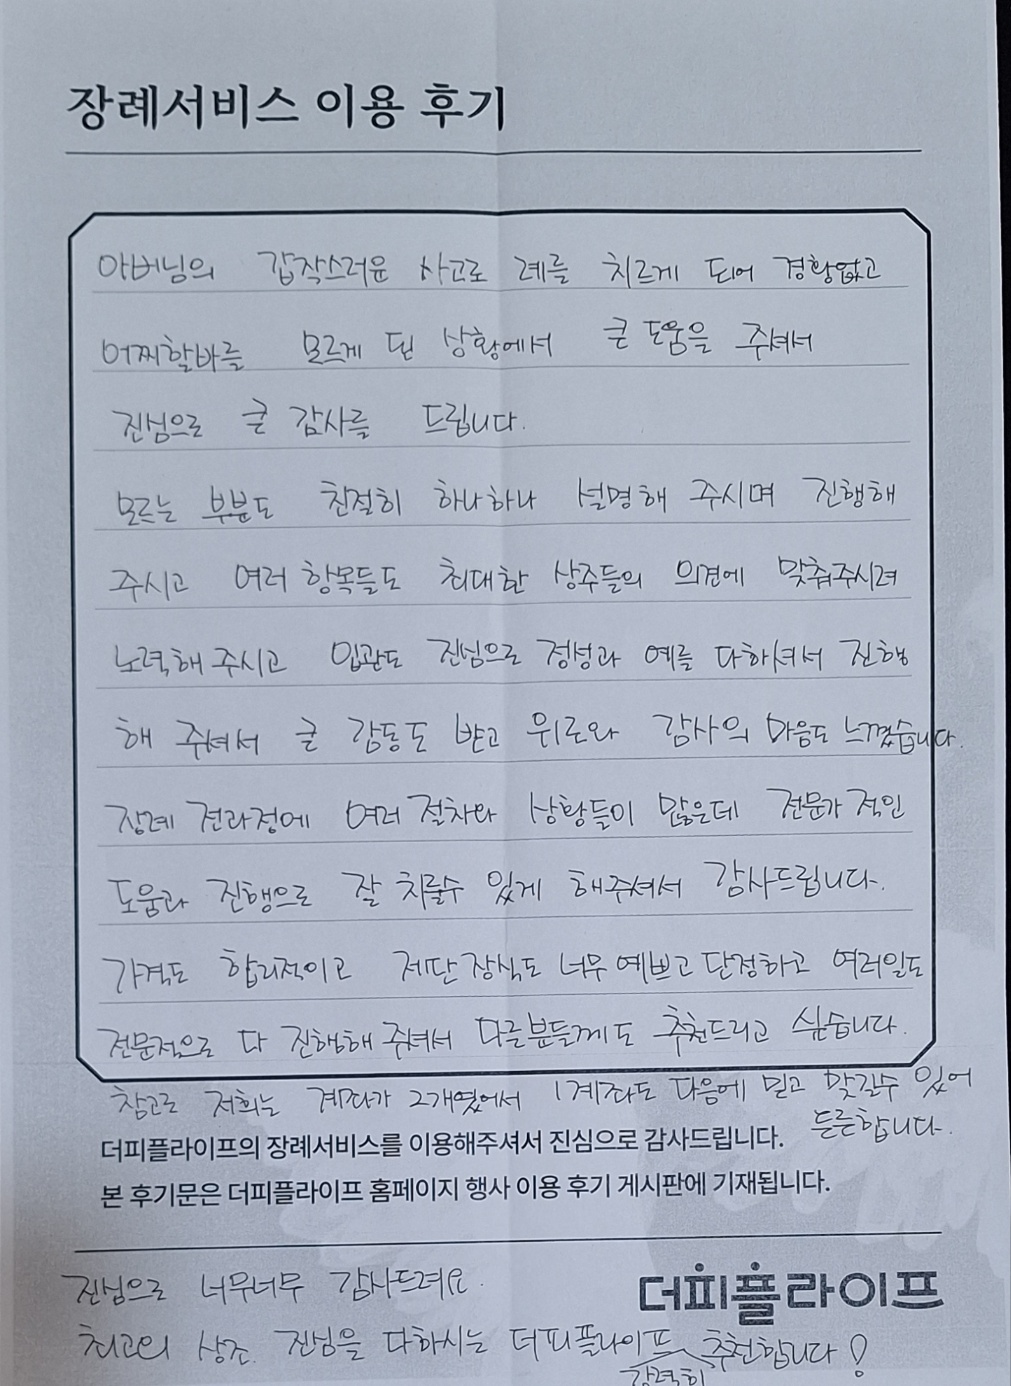 장례서비스 이용 후기
아버님의 갑작스러운 사고로 례를 치르게 되어 경황없고
어찌할바를 모르게 된 상황에서 큰 도움을 주셔서
진심으로 큰 감사를 드립니다.
모르는 부분도 친절히 하나하나 설명해 주시며 진행해
주시고 여러 항목들도 최대한 상주들의 의견에 맞춰주시려
노력해 주시고 입관도 진심으로 정성과 예를 다하셔서 진행
해 주셔서 큰 감동도 받고 위로와 감사의 마음도 느꼈습니다.
장례 전과정에 여러 절차와 상황들이 많은데 전문가 적인
도움과 진행으로 잘 치룰수 있게 해주셔서 감사드립니다.
가격도 합리적이고 제단장식도 너무 예쁘고 단정하고 여러일도
전문적으로 다 진행해 주셔서 다른분들께도 추천드리고 싶습니다.
참고로 저희는 계좌가 2개였어서 1계좌도 다음에 믿고 맞길수 있어
든든합니다.
더피플라이프의 장례서비스를 이용해주셔서 진심으로 감사드립니다.
본 후기문은 더피플라이프 홈페이지 행사 이용 후기 게시판에 기재됩니다.
진심으로 너무너무 감사드려요.
더피플라이프
최고의 상조. 진심을 다하시는 더피플라이프 추천합니다!
강력히